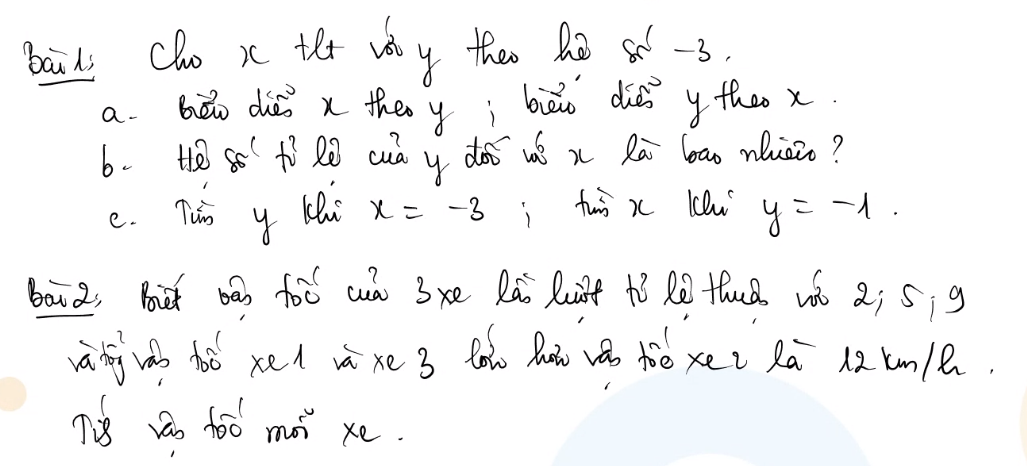 Bài 1: Cho x tlt với y theo hệ số -3.
a. Biểu diễn x theo y ; biểu diễn y theo x.
b. Hệ số tỉ lệ của y đối với x là bao nhiêu?
c. Tìm y khi x = -3 ; tìm x khi y = -1.
Bài 2: Biết vận tốc của 3 xe lần lượt tỉ lệ thuận với 2; 5; 9
và tổng vận tốc xe 1 và xe 3 lớn hơn vận tốc xe 2 là 12 km/h.
Tính vận tốc mỗi xe.